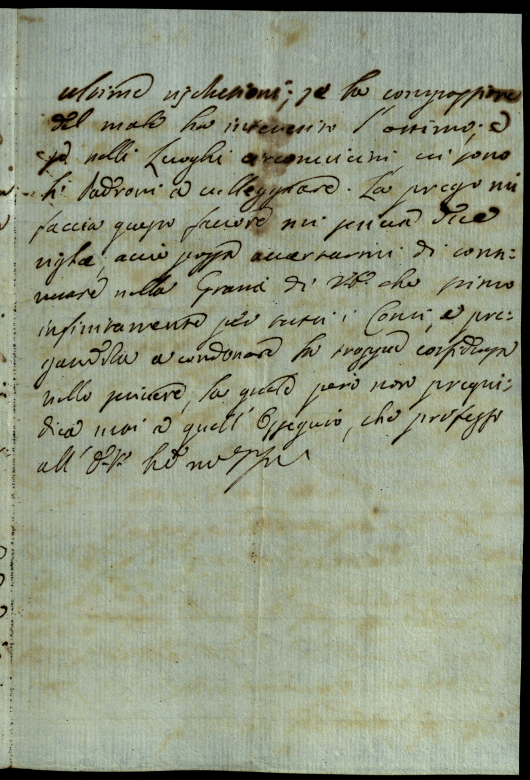 ultime
del male ha l'ottimo; e
se nelli Luoghi circonvicini vi sono
li Padroni a villeggiare. La prego mi
faccia questo favore mi due
righe, acciò possa accertarmi di conti-
nuare nella Grazia di che stimo
infinitamente per tutti i Conti, e pre-
gandola a condonare la troppa confidenza
nello scrivere, la quale però non pregiu-
dica mai a quell'Ossequio, che professo
all'